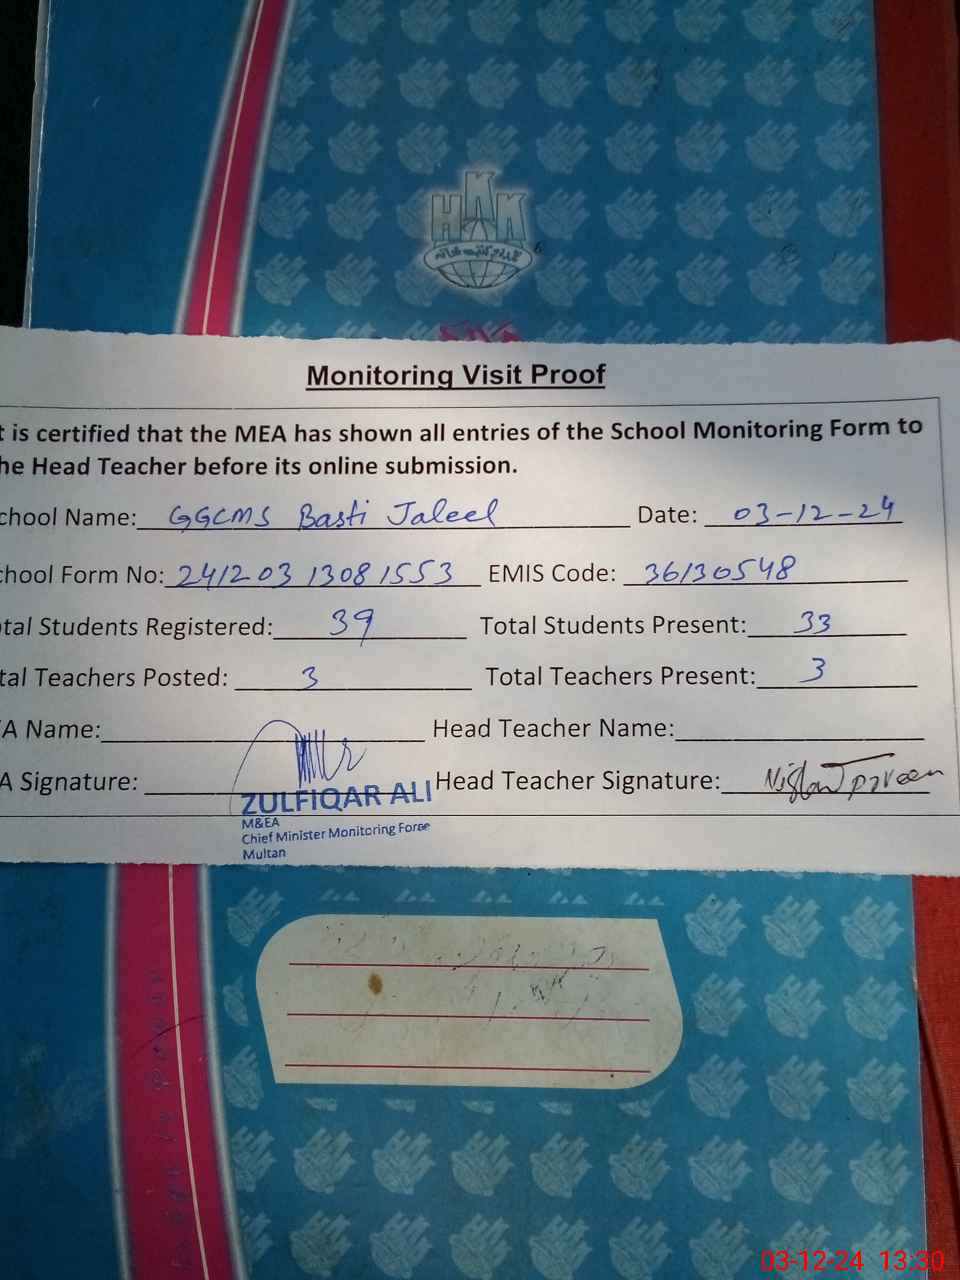 HKK
Monitoring Visit Proof
t is certified that the MEA has shown all entries of the School Monitoring Form to
he Head Teacher before its online submission.
chool Name: GGCMS Basti Jaleel Date: 03-12-24
chool Form No: 24120313081553 EMIS Code: 36130548
tal Students Registered: 39 Total Students Present: 33
tal Teachers Posted: 3 Total Teachers Present: 3
A Name: Head Teacher Name:
A Signature: Head Teacher Signature:
ZULFIQAR ALI
M&EA
Chief Minister Monitoring Force
Multan
03-12-24 13:30